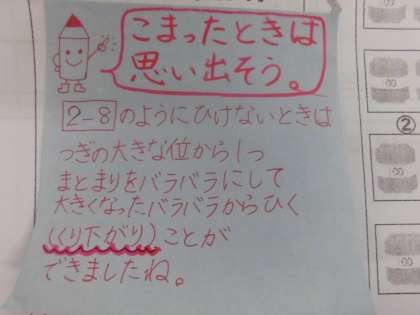 こまったときは
思い出そう。
2-8のようにひけないときは
つぎの大きな位から1つ
まとまりをバラバラにして
大きくなったバラバラからひく
(くり下がり)ことが
できましたね。
②